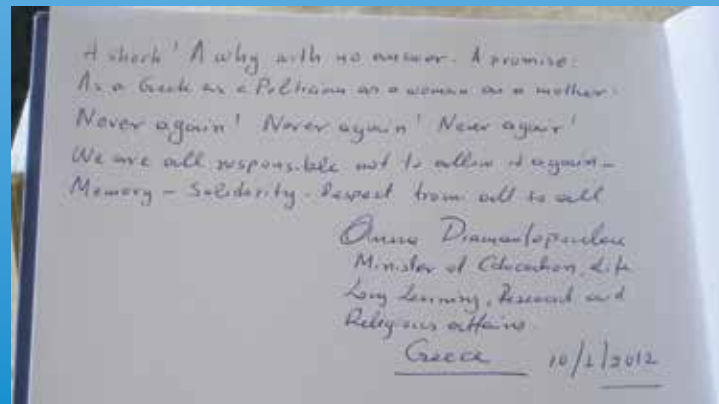 A shock! A why with no answer. A promise:
As a Greek as a Politician as a woman as a mother.
Never again! Never again! Never again!
We are all responsible not to allow it again -
Memory - Solidarity - Respect from all to all
Anna Diamantopoulou
Minister of Education, Life
Long Learning, Research and
Religious affairs
Greece 10/1/2012